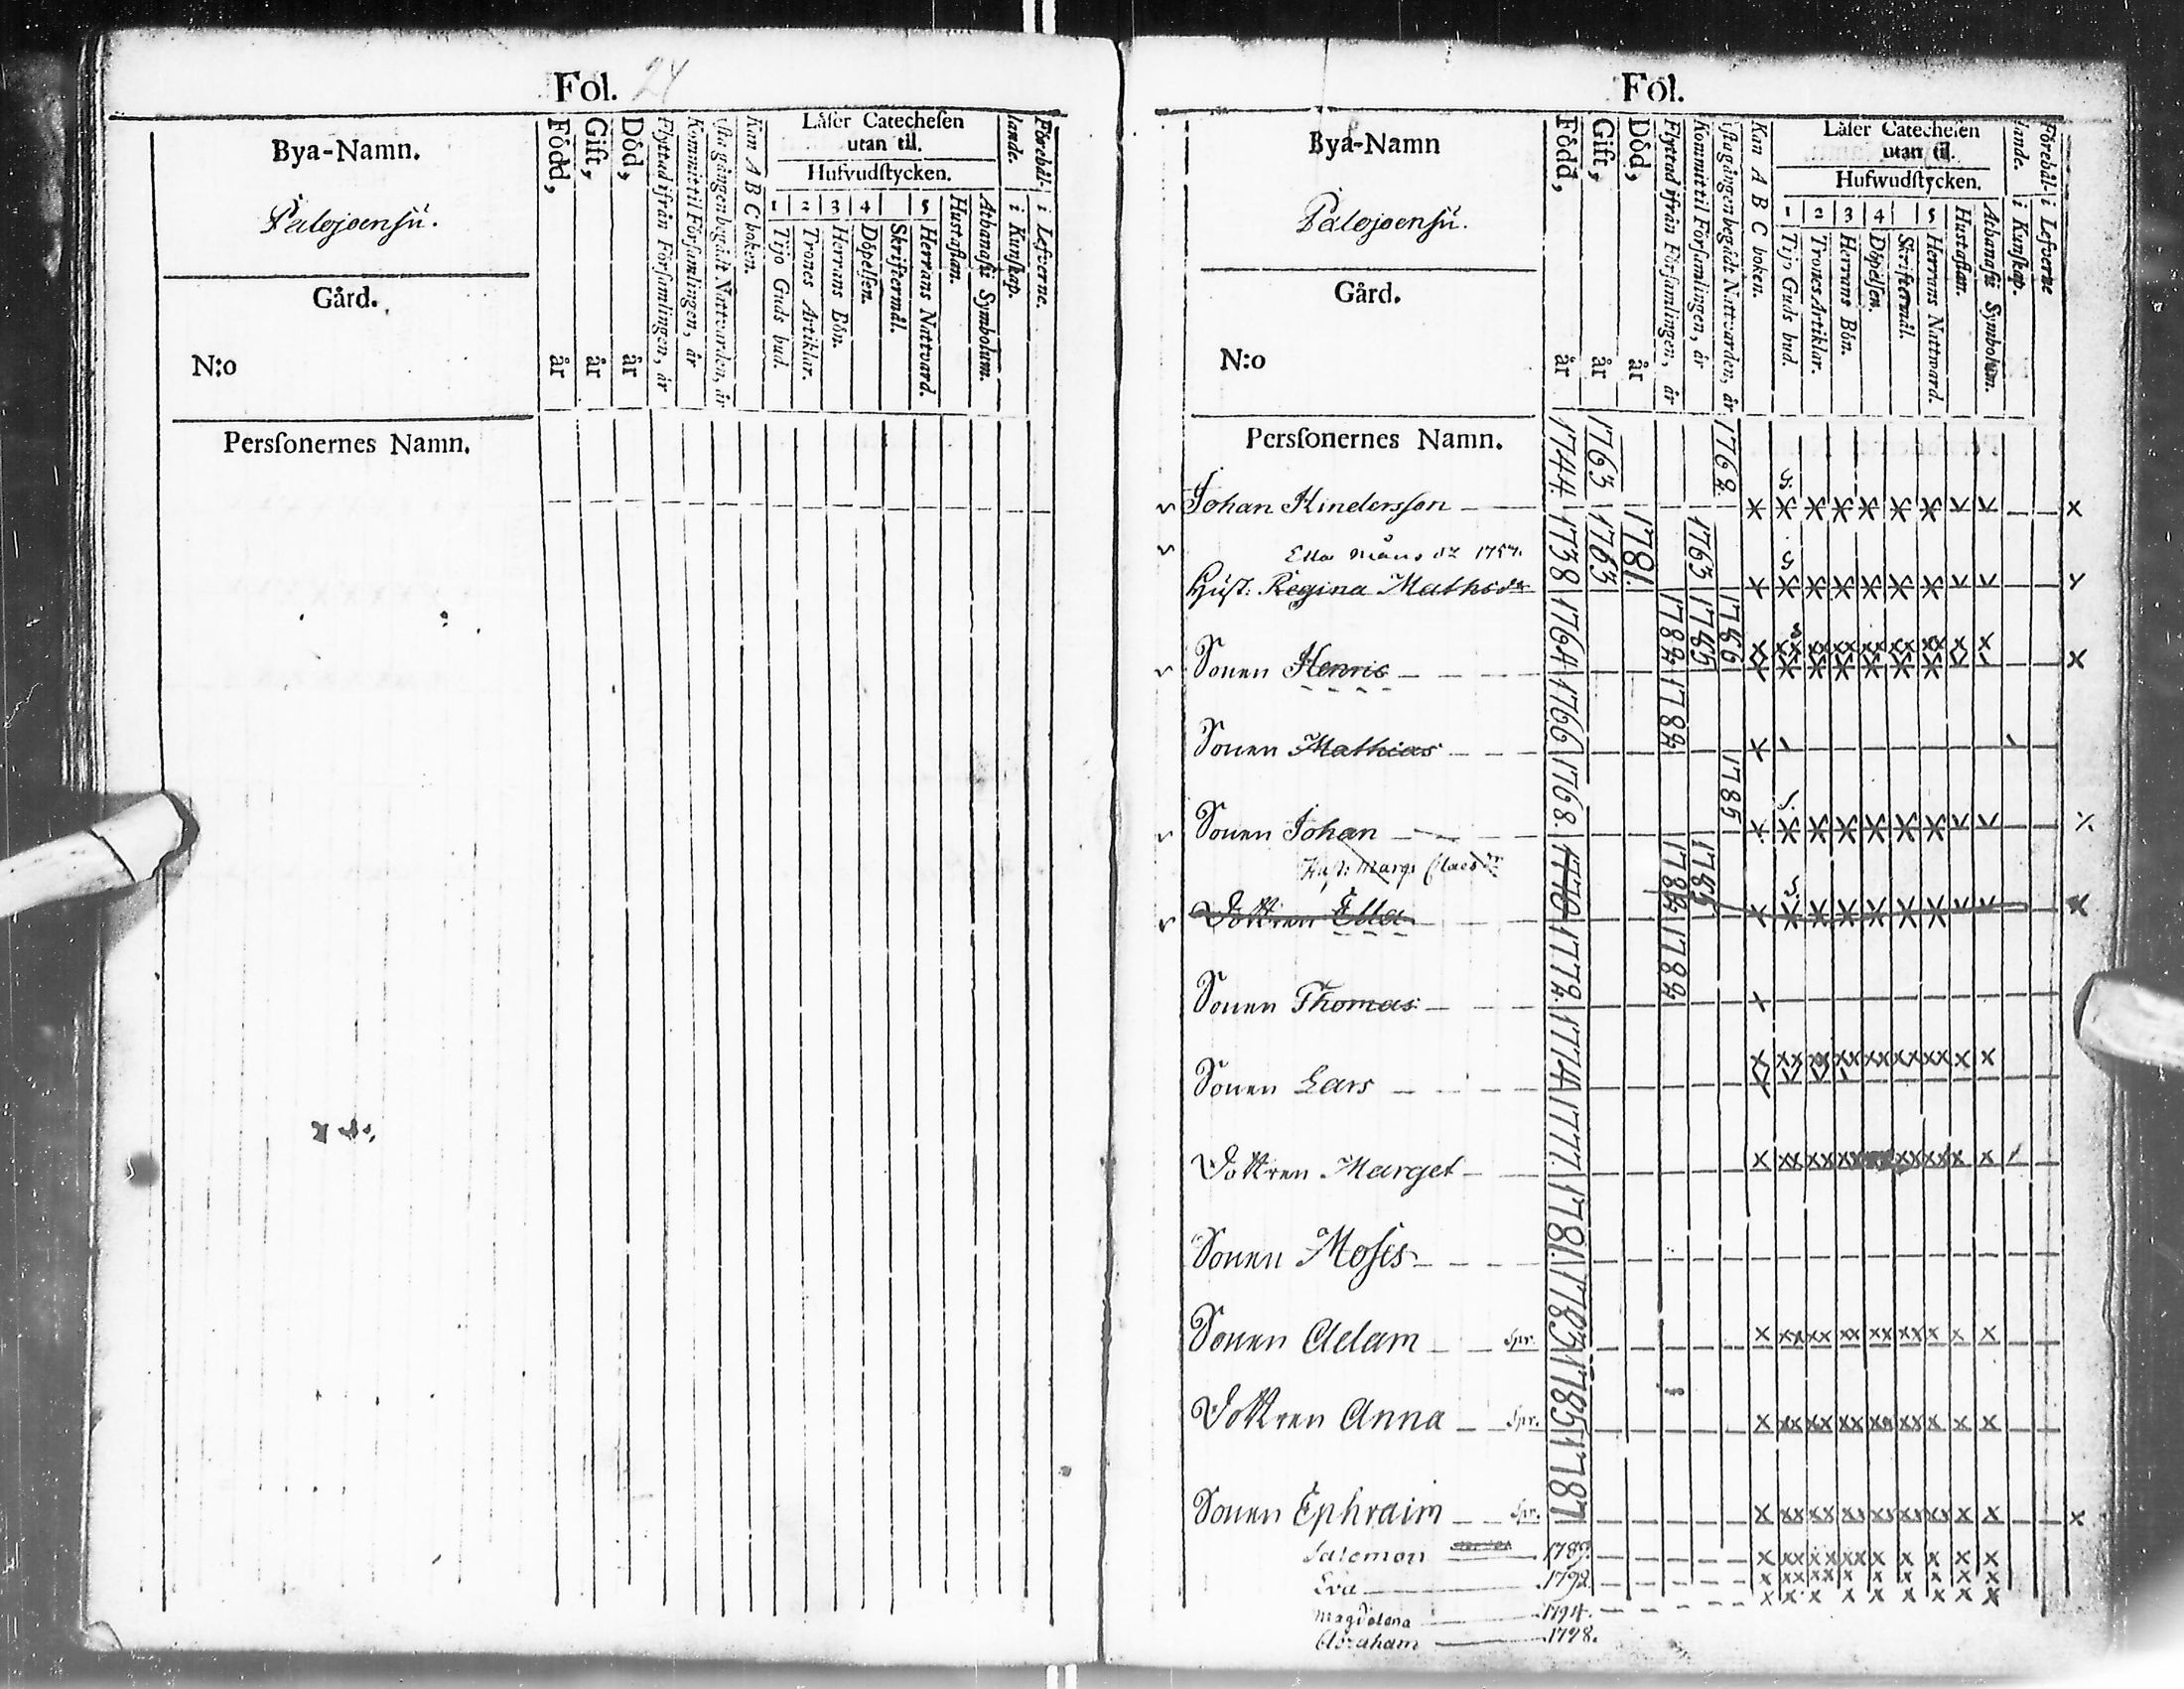 Fol. 24
Bya-Namn.
Palojoensu.
Gård.
N:o
Personernes Namn.
Född, år
Gift, år
Död, år
Flyttad ifrån Församlingen, år
Kommit til Församlingen, år
1sta gången begådt Nattvarden, år
Kan A B C boken.
Låser Catechesen
utan til.
Hufvudstycken.
1 2 3 4 5
Tijo Guds bud.
Trones Artiklar.
Herrans Bön.
Döpelsen.
Skriftermål.
Herrans Nattvard.
Hustaflan.
Athanasii Symbolum.
Förehål-
lande.
i Kunskap.
i Lefverne.
Fol.
Bya-Namn
Palojoensu.
Gård.
N:o
Personernes Namn.
Född, år
Gift, år
Död, år
Flyttad ifrån Församlingen, år
Kommit til Församlingen, år
1sta gången begådt Nattvarden, år
Kan A B C boken.
Låser Catechesen
utan til.
Hufwudstycken.
1 2 3 4 5
Tijo Guds bud.
Trones Artiklar.
Herrans Bön.
Döpelsen.
Skriftermål.
Herrans Nattward.
Hustaflan.
Athanasii Symbolum.
Förehål-
lande.
i Kunskap.
i Lefverne
Johan Hindersson 1744. 1763 1762.
Ella Måns dr 1757.
Hust: Regina Mathsdr 1738 1763 1781. 1763
Sonen Henric 1764 1782 1785 1786
Sonen Mathias 1766 1782
Sonen Johan 1768. 1785
Hust: Margr Claes dr
Dottren Ella 1770 1782 1785
Sonen Thomas 1772. 1782
Sonen Lars 1774
Dottren Marget 1777.
Sonen Moses 1781.
Sonen Adam Spr. 1783
Dottren Anna Spr. 1785
Sonen Ephraim Spr. 1787
Salomon 1789.
Eva 1792.
Magdalena 1794.
Abraham 1798.